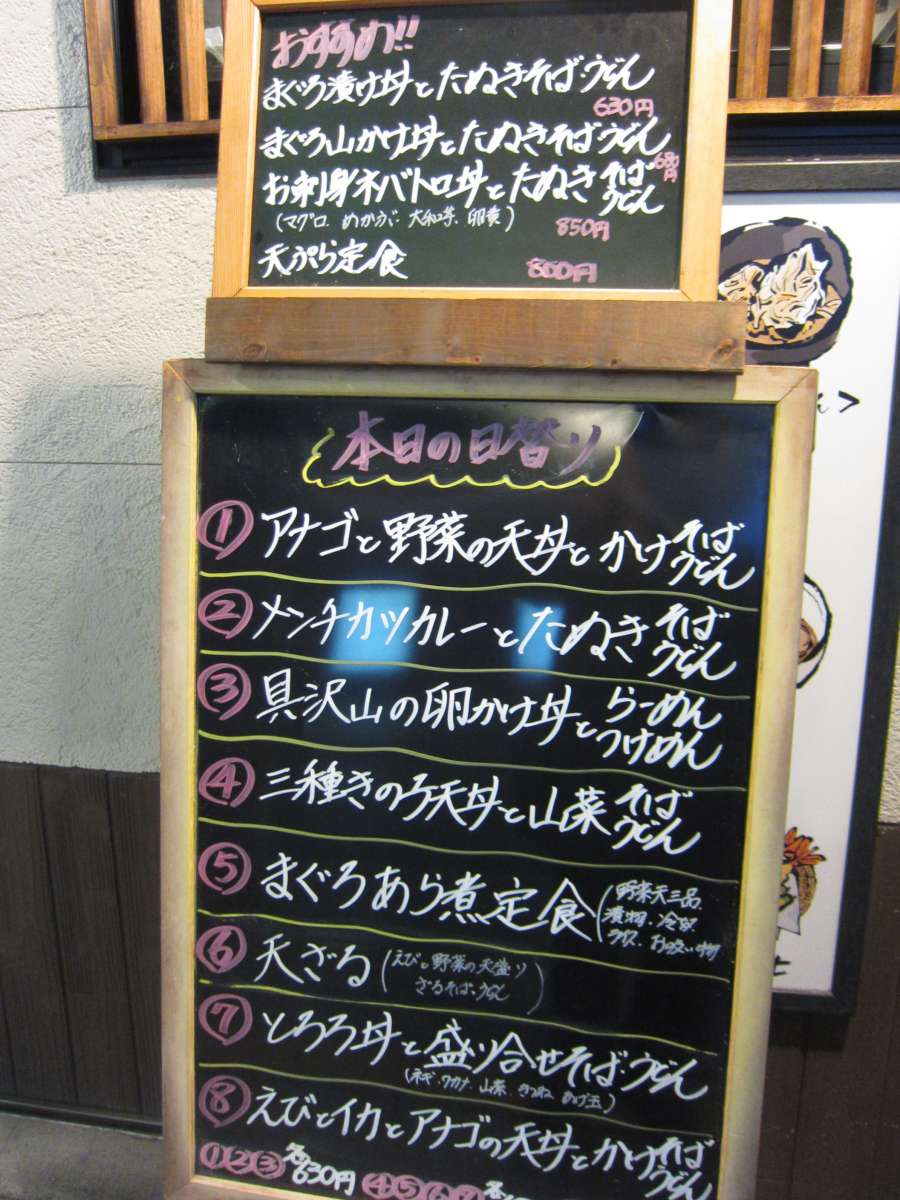 おすすめ!!
まぐろ漬け丼とたぬきそば・うどん
630円
まぐろ山かけ丼とたぬきそば・うどん
680円
お刺身ネバトロ丼とたぬき そば うどん
(マグロ、めかぶ、大和芋、卵黄) 850円
天ぷら定食 800円
本日の日替り
① アナゴと野菜の天丼とかけ そば うどん
② メンチカツカレーとたぬき そば うどん
③ 具沢山の卵かけ丼と らーめん つけめん
④ 三種きのこ天丼と山菜 そば うどん
⑤ まぐろあら煮定食 (野菜天三品、
漬物、冷奴
ライス、お吸い物
⑥ 天ざる (えびと野菜の天盛り
ざるそば・うどん)
⑦ とろろ丼と盛り合せそば・うどん
(ネギ、ワカメ、山菜、きつね、あげ玉)
⑧ えびとイカとアナゴの天丼とかけ そば うどん
①②③ 各630円 ④⑤⑥⑦